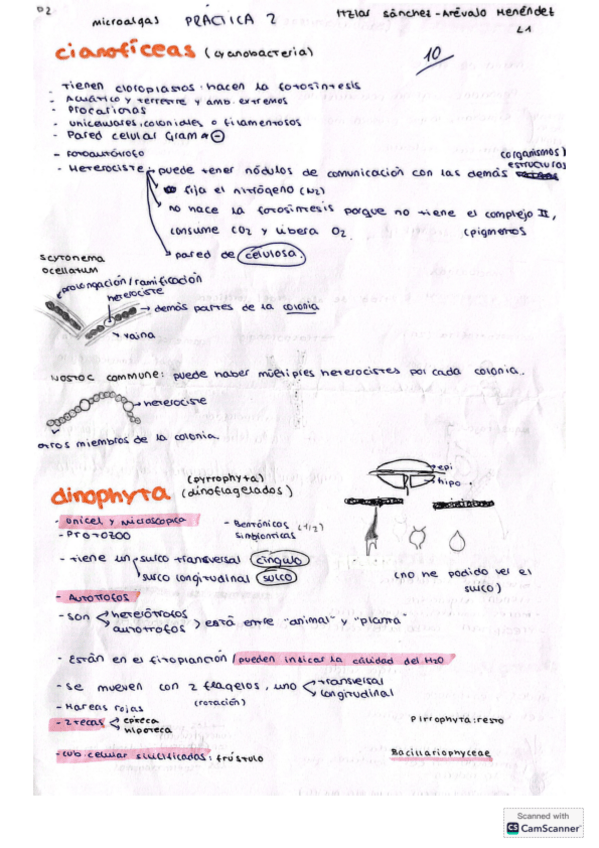 D2
microalgas PRÁCTICA 2 Itziar Sánchez-Arévalo Menéndez
L1
cianofíceas (cyanobacteria) 10
- Tienen cloroplastos: hacen la fotosíntesis
- Acuático y terrestre y amb. extremos
- Procariotas
- Unicelulares, coloniales o filamentosos
- Pared celular Gram -
- Fotoautótrofo
- Heterociste: puede tener nódulos de comunicación con las demás (organismos) estructuras
fija el nitrógeno (N2)
no hace la fotosíntesis porque no tiene el complejo II,
consume CO2 y libera O2. (pigmentos
pared de celulosa.
SCYTONEMA
OCELLATUM
prolongación/ramificación
heterociste
demás partes de la colonia
vaina
NOSTOC COMMUNE: puede haber múltiples heterocistes por cada colonia.
heterociste
otros miembros de la colonia.
dinophyta (pyrrophyta)
(dinoflagelados)
epi
hipo.
- Unicel y microscópica
- Protozoo
- Bentónicos (1/2)
simbionticas
- tiene un surco transversal cíngulo
surco longitudinal sulco
(no he podido ver el
sulco)
- Autótrofos
- son heterótrofos
autótrofos
está entre "animal" y "planta"
- Están en el fitoplancton / pueden indicar la calidad del H2O
- se mueven con 2 flagelos, uno transversal
longitudinal
(rotación)
- Mareas rojas
- 2 tecas epiteca
hipoteca
Pirrophyta: resto
- cub celular silicificados: frústulo
Bacillariophyceae
Scanned with
CS CamScanner